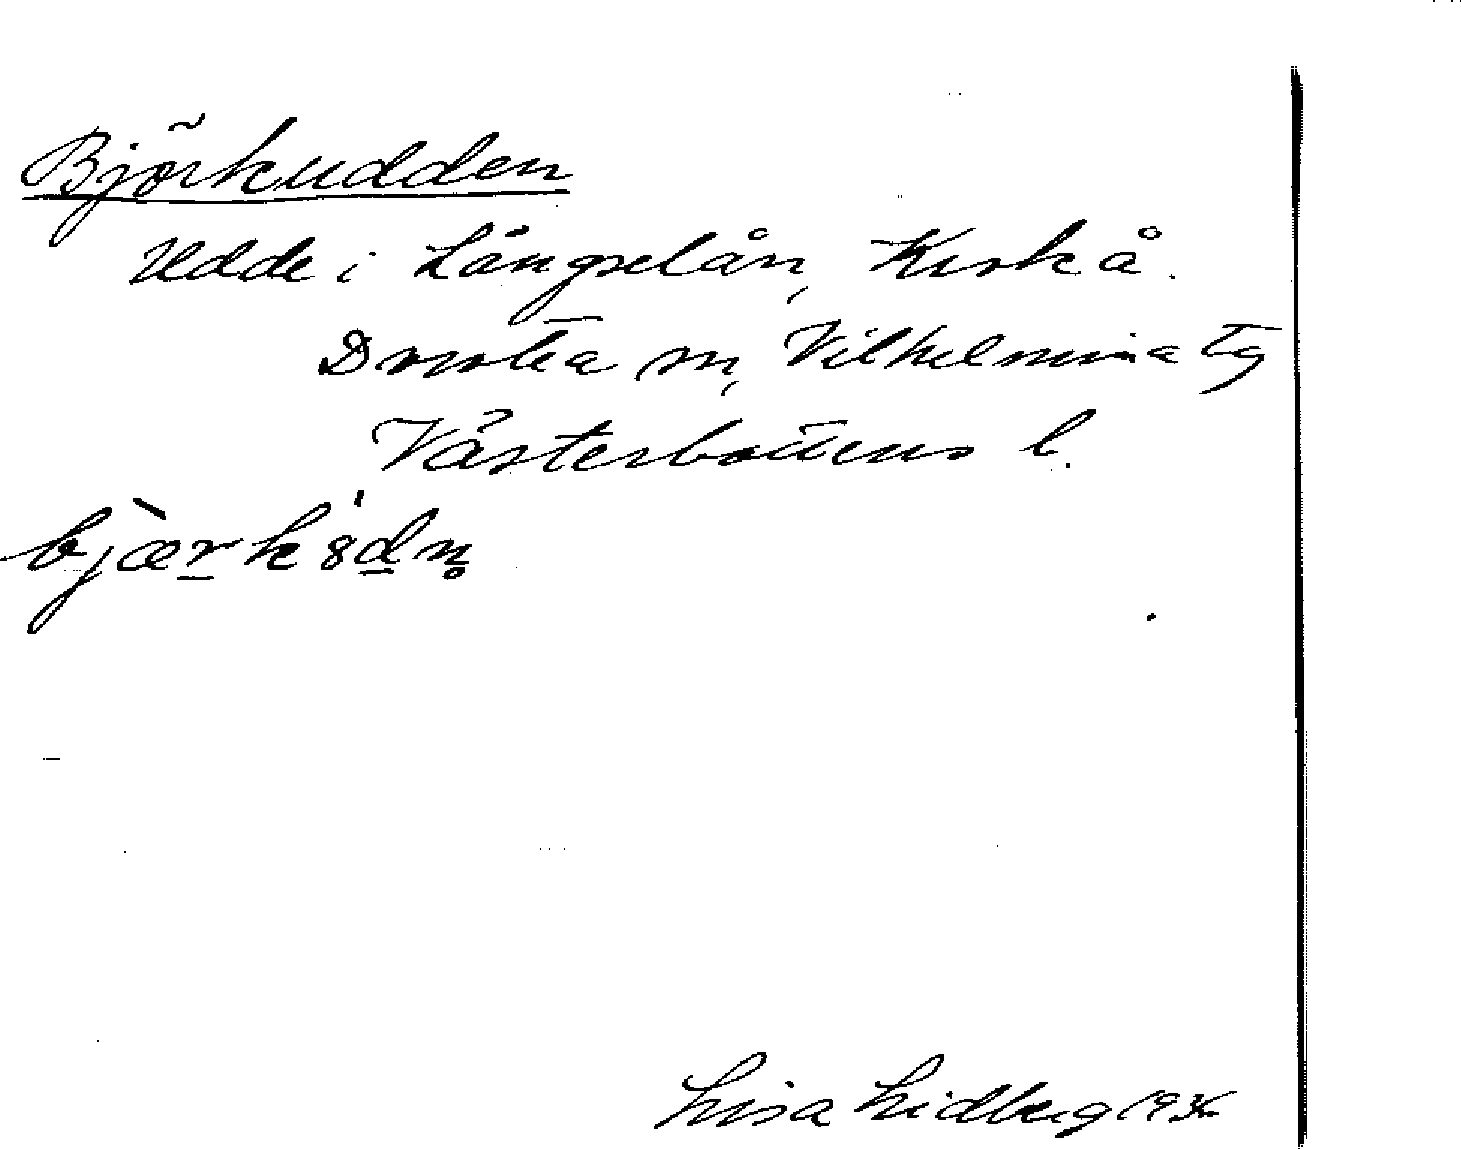 Björkudden
Udde i Långselån, Keskå.
Dorotea sn, Vilhelmina tg
Västerbottens l.
bjær̲k8d̲n̥
Lisa Lidberg 1936